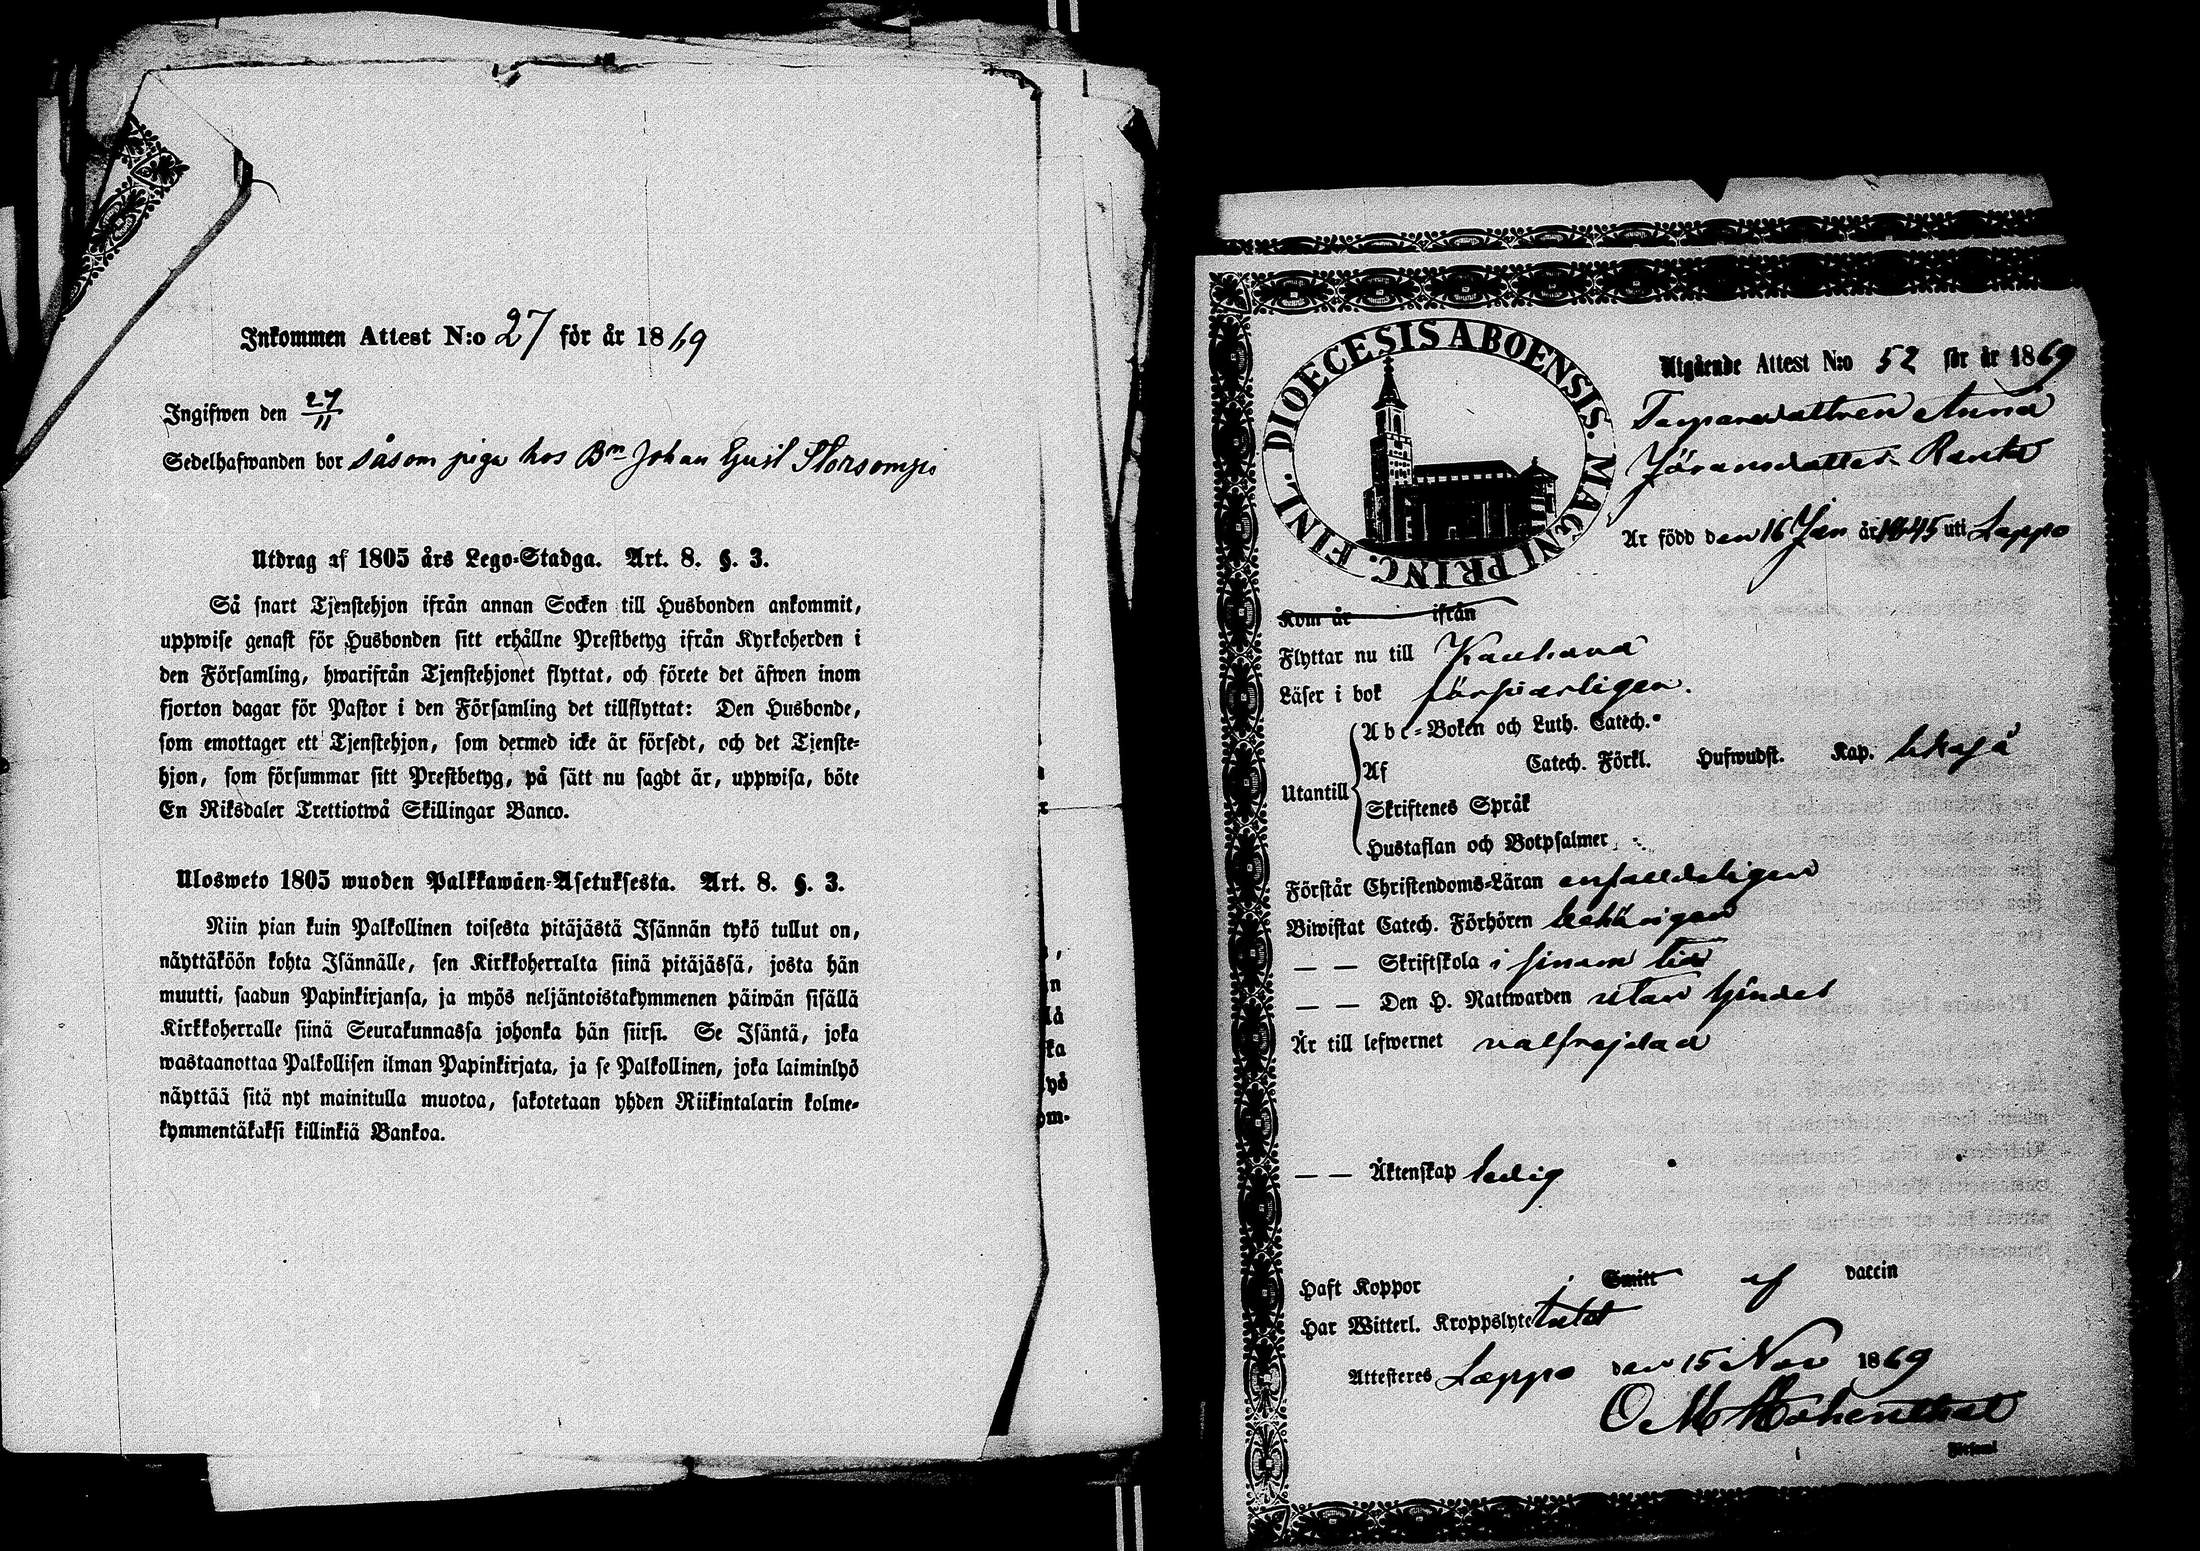 Inkommen Attest N:o 27 för år 1869
Ingifwen den 27/11
Sedelhafwanden bor såsom piga hos Bn Johan Gust Storsompi
Utdrag af 1805 års Lego-Stadga. Art. 8. §. 3.
Så snart Tjenstehjon ifrån annan Socken till Husbonden ankommit,
uppwise genast för Husbonden sitt erhållne Prestbetyg ifrån Kyrkoherden i
den Församling, hwarifrån Tjenstehjonet flyttat, och förete det äfwen inom
fjorton dagar för Pastor i den Församling det tillflyttat: Den Husbonde,
som emottager ett Tjenstehjon, som dermed icke är försedt, och det Tjenste-
hjon, som försummar sitt Prestbetyg, på sätt nu sagdt är, uppwisa, böte
En Riksdaler Trettiotwå Skillingar Banco.
Ulosweto 1805 wuoden Palkkawäen-Asetuksesta. Art. 8. §. 3.
Niin pian kuin Palkollinen toisesta pitäjästä Isännän tykö tullut on,
näyttäköön kohta Isännälle, sen Kirkkoherralta siinä pitäjässä, josta hän
muutti, saadun Papinkirjansa, ja myös neljäntoistakymmenen päiwän sisällä
Kirkkoherralle siinä Seurakunnassa johonka hän siirsi. Se Isäntä, joka
wastaanottaa Palkollisen ilman Papinkirjata, ja se Palkollinen, joka laiminlyö
näyttää sitä nyt mainitulla muotoa, sakotetaan yhden Riikintalarin kolme-
kymmentäkaksi killinkiä Bankoa.
DIOECESIS ABOENSIS. MAGNI PRINC. FINL.
Utgående Attest N:o 52 för år 1869
Torparedottren Anna
Jöransdotter Ranta
Är född den 16 Jan år 1845 uti Lappo
Kom år ifrån
Flyttar nu till Kauhava
Läser i bok försvarligen.
Abc-Boken och Luth. Catech.
Af Catech. Förkl. Hufwudst. Kap.
Utantill
Skriftenes Språk
Hustaflan och Botpsalmer
Förstår Christendoms-Läran enfaldeligen
Biwistat Catech. Förhören behörigen
— — Skriftskola i sinom tid
— — Den H. Nattwarden utan hinder
Är till lefwernet välfrejdad
— — Äktenskap ledig
Haft Koppor Smitt af Vaccin
Har Witterl. Kroppslyte intet
Attesteras Lappo den 15 Nov 1869